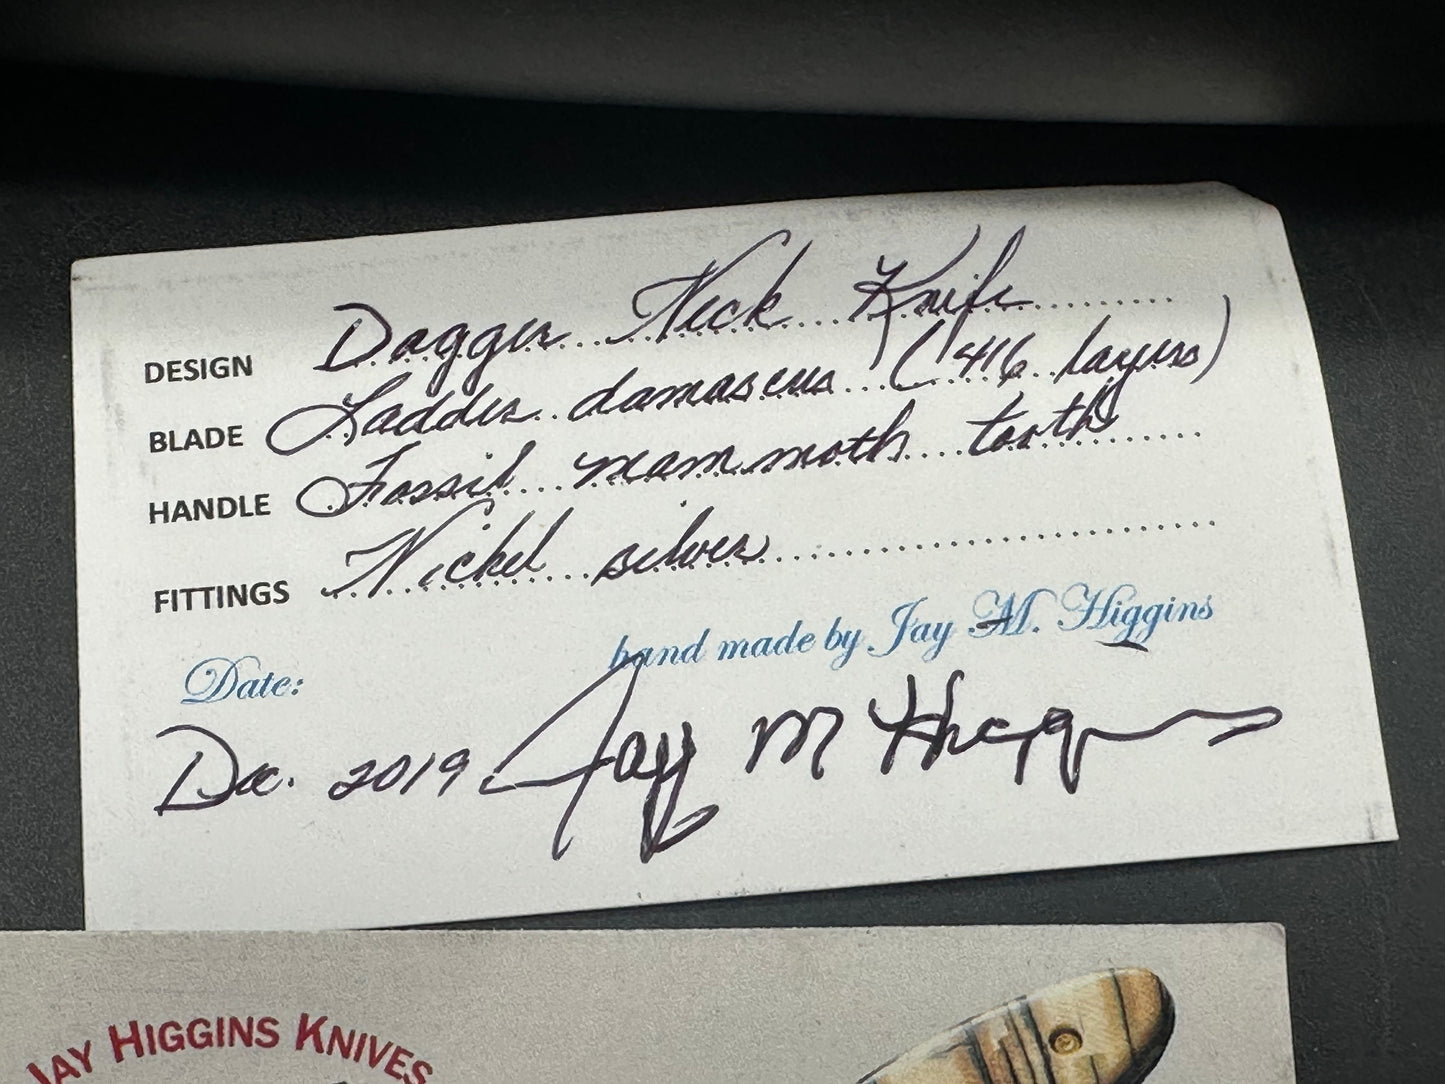 DESIGN Dagger Neck Knife
BLADE Ladder damascus (416 layers)
HANDLE Fossil mammoth tooth
FITTINGS Nickel silver
hand made by Jay M. Higgins
Date:
Dec. 2019 Jay M Higgins
JAY HIGGINS KNIVES